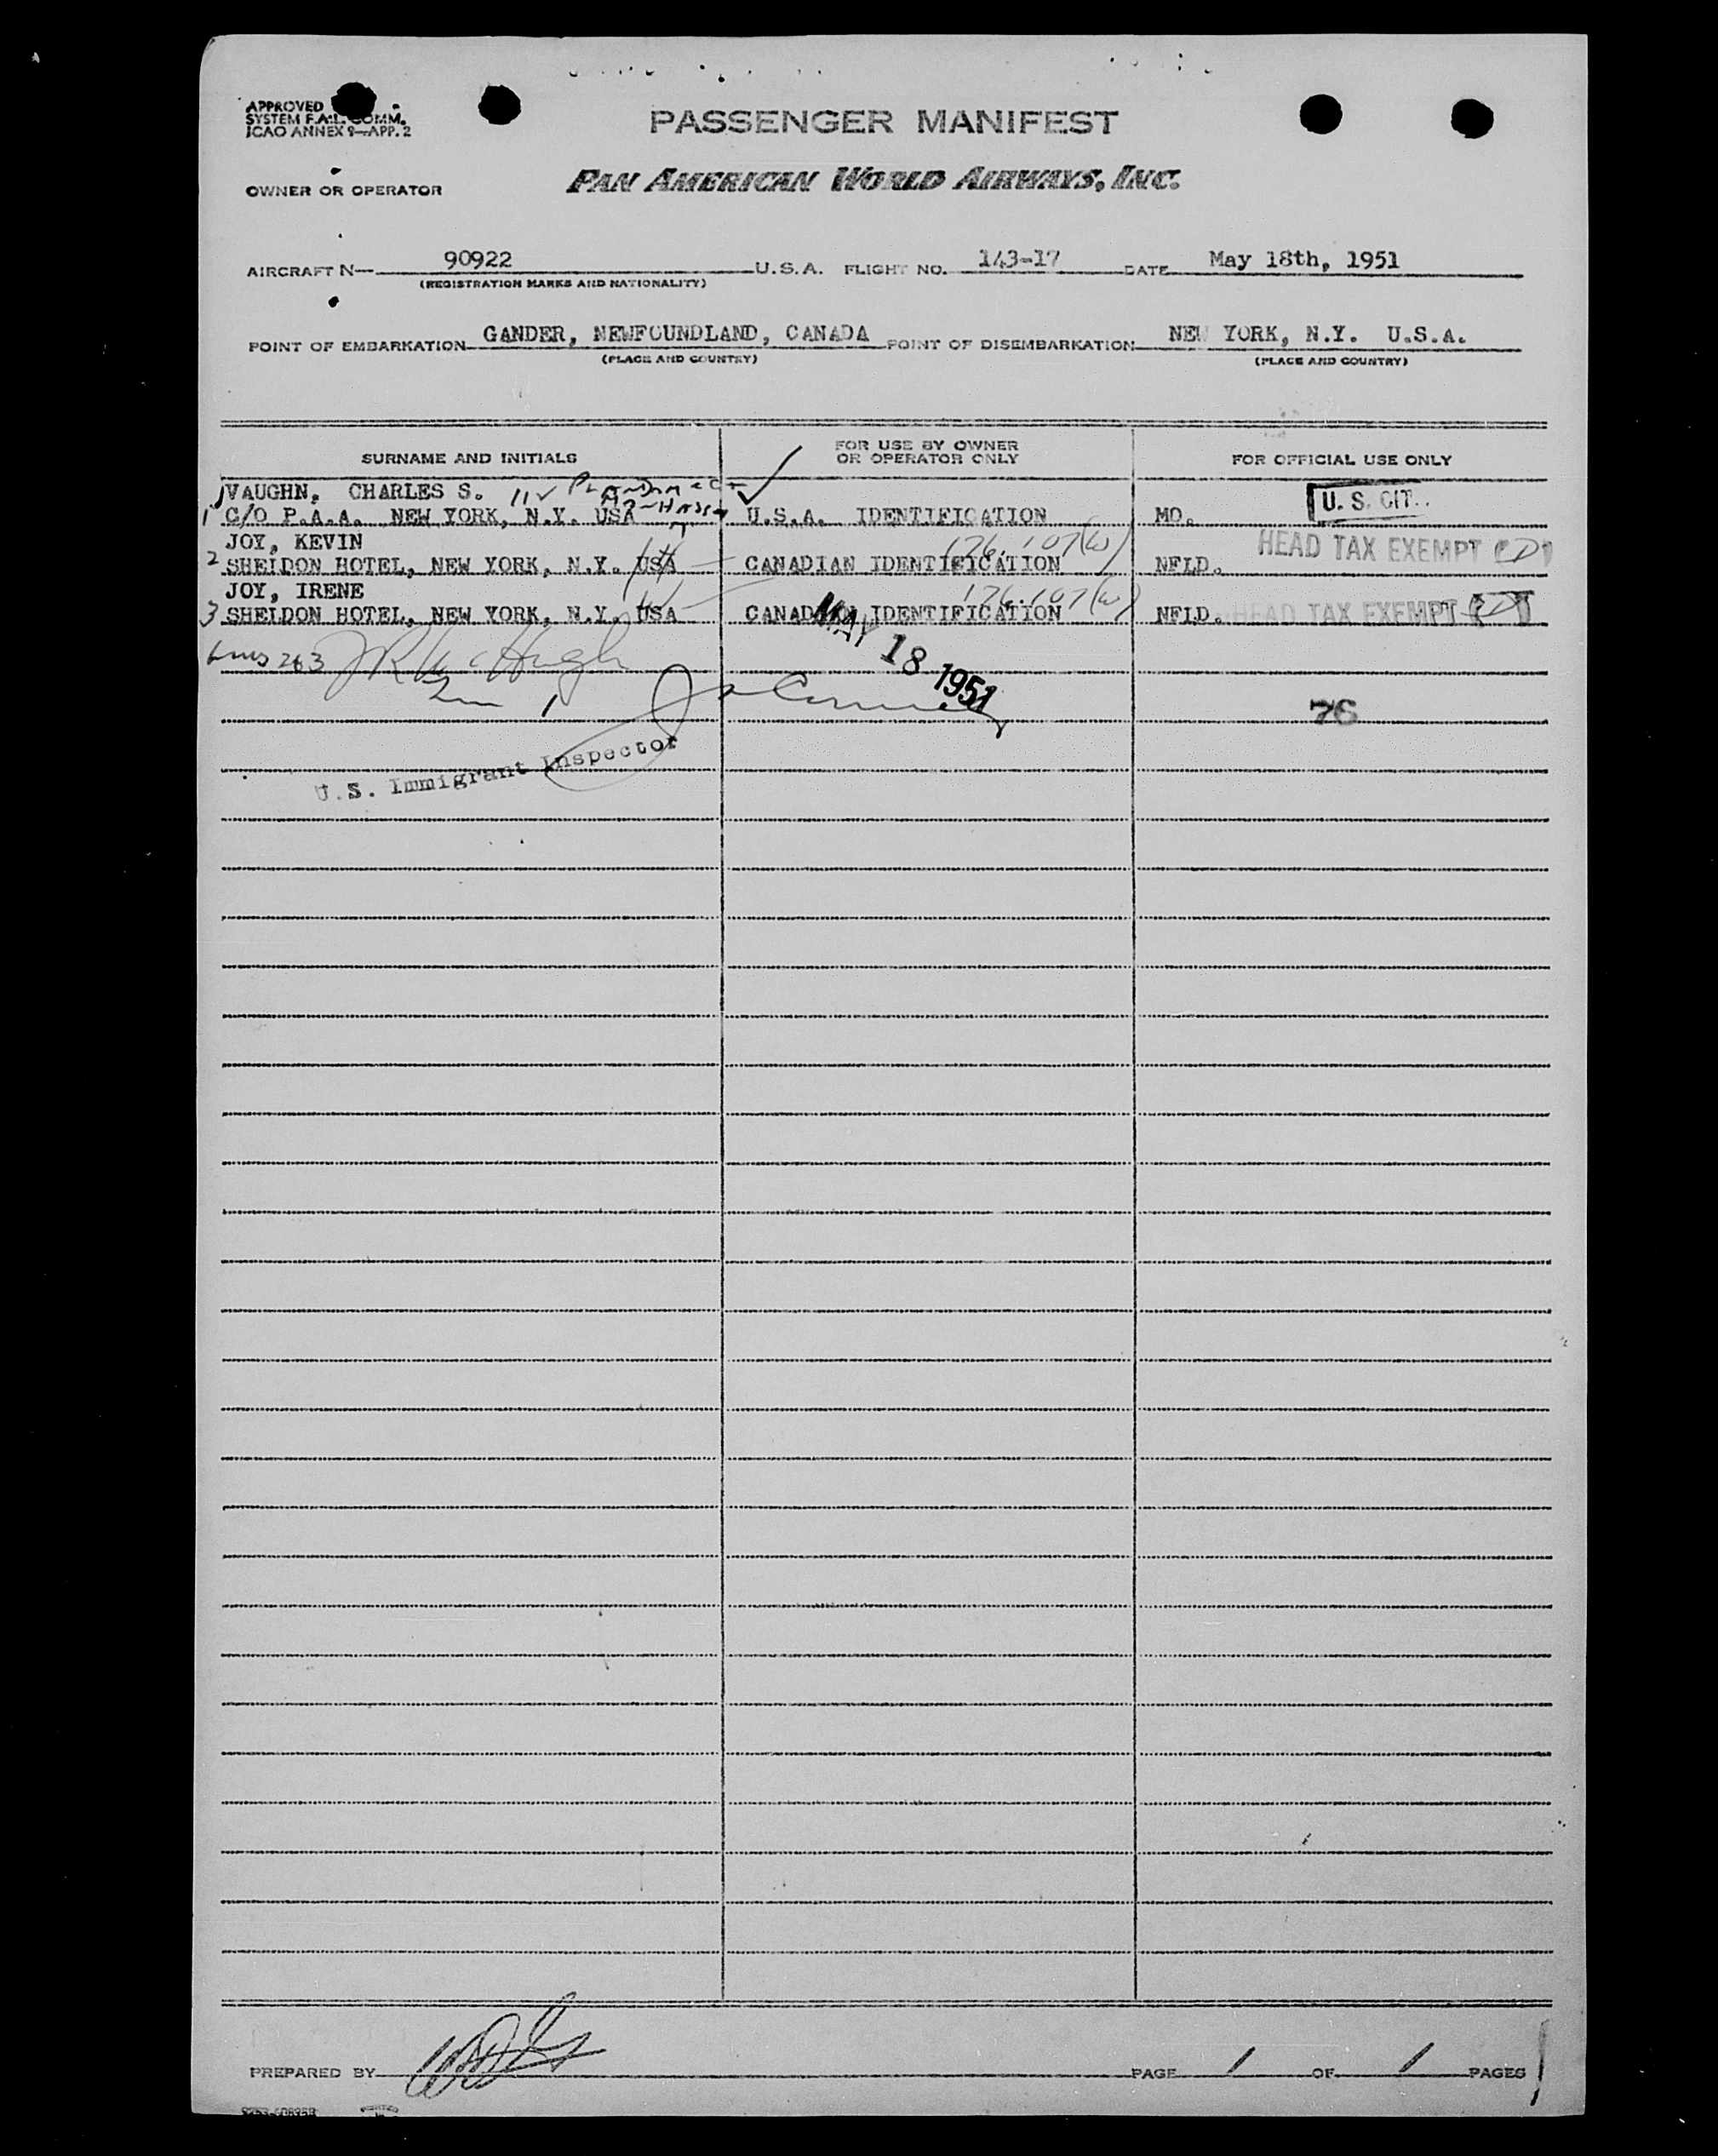 APPROVED
SYSTEM F.A.L. COMM.
ICAO ANNEX 9—APP. 2
PASSENGER MANIFEST
OWNER OR OPERATOR PAN AMERICAN WORLD AIRWAYS, INC.
AIRCRAFT N— 90922 U.S.A. FLIGHT NO. 143-17 DATE May 18th, 1951
(REGISTRATION MARKS AND NATIONALITY)
POINT OF EMBARKATION GANDER, NEWFOUNDLAND, CANADA POINT OF DISEMBARKATION NEW YORK, N.Y. U.S.A.
(PLACE AND COUNTRY) (PLACE AND COUNTRY)
SURNAME AND INITIALS FOR USE BY OWNER OR OPERATOR ONLY FOR OFFICIAL USE ONLY
VAUGHN, CHARLES S. 11 ✓
1 C/O P.A.A. NEW YORK, N.Y. USA U.S.A. IDENTIFICATION MO. U. S. CIT.
JOY, KEVIN 176.107(W) HEAD TAX EXEMPT
2 SHELDON HOTEL, NEW YORK, N.Y. USA CANADIAN IDENTIFICATION NFLD.
JOY, IRENE 176.107(W)
3 SHELDON HOTEL, NEW YORK, N.Y. USA CANADIAN IDENTIFICATION NFLD. HEAD TAX EXEMPT
263 MAY 18 1951
76
U.S. Immigrant Inspector
PREPARED BY PAGE 1 OF 1 PAGES